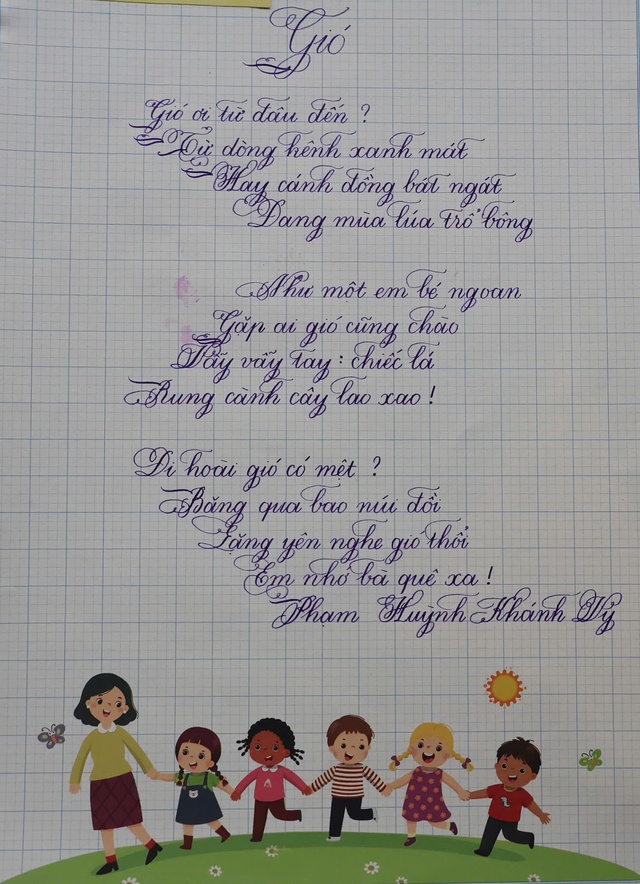 Gió
Gió ơi từ đâu đến ?
Từ dòng kênh xanh mát
Hay cánh đồng bát ngát
Đang mùa lúa trổ bông
Như một em bé ngoan
Gặp ai gió cũng chào
Vẫy vẫy tay : chiếc lá
Rung cành cây lao xao !
Đi hoài gió có mệt ?
Băng qua bao núi đồi
Lặng yên nghe gió thổi
Em nhớ bà quê xa !
Phạm Huỳnh Khánh Vỹ